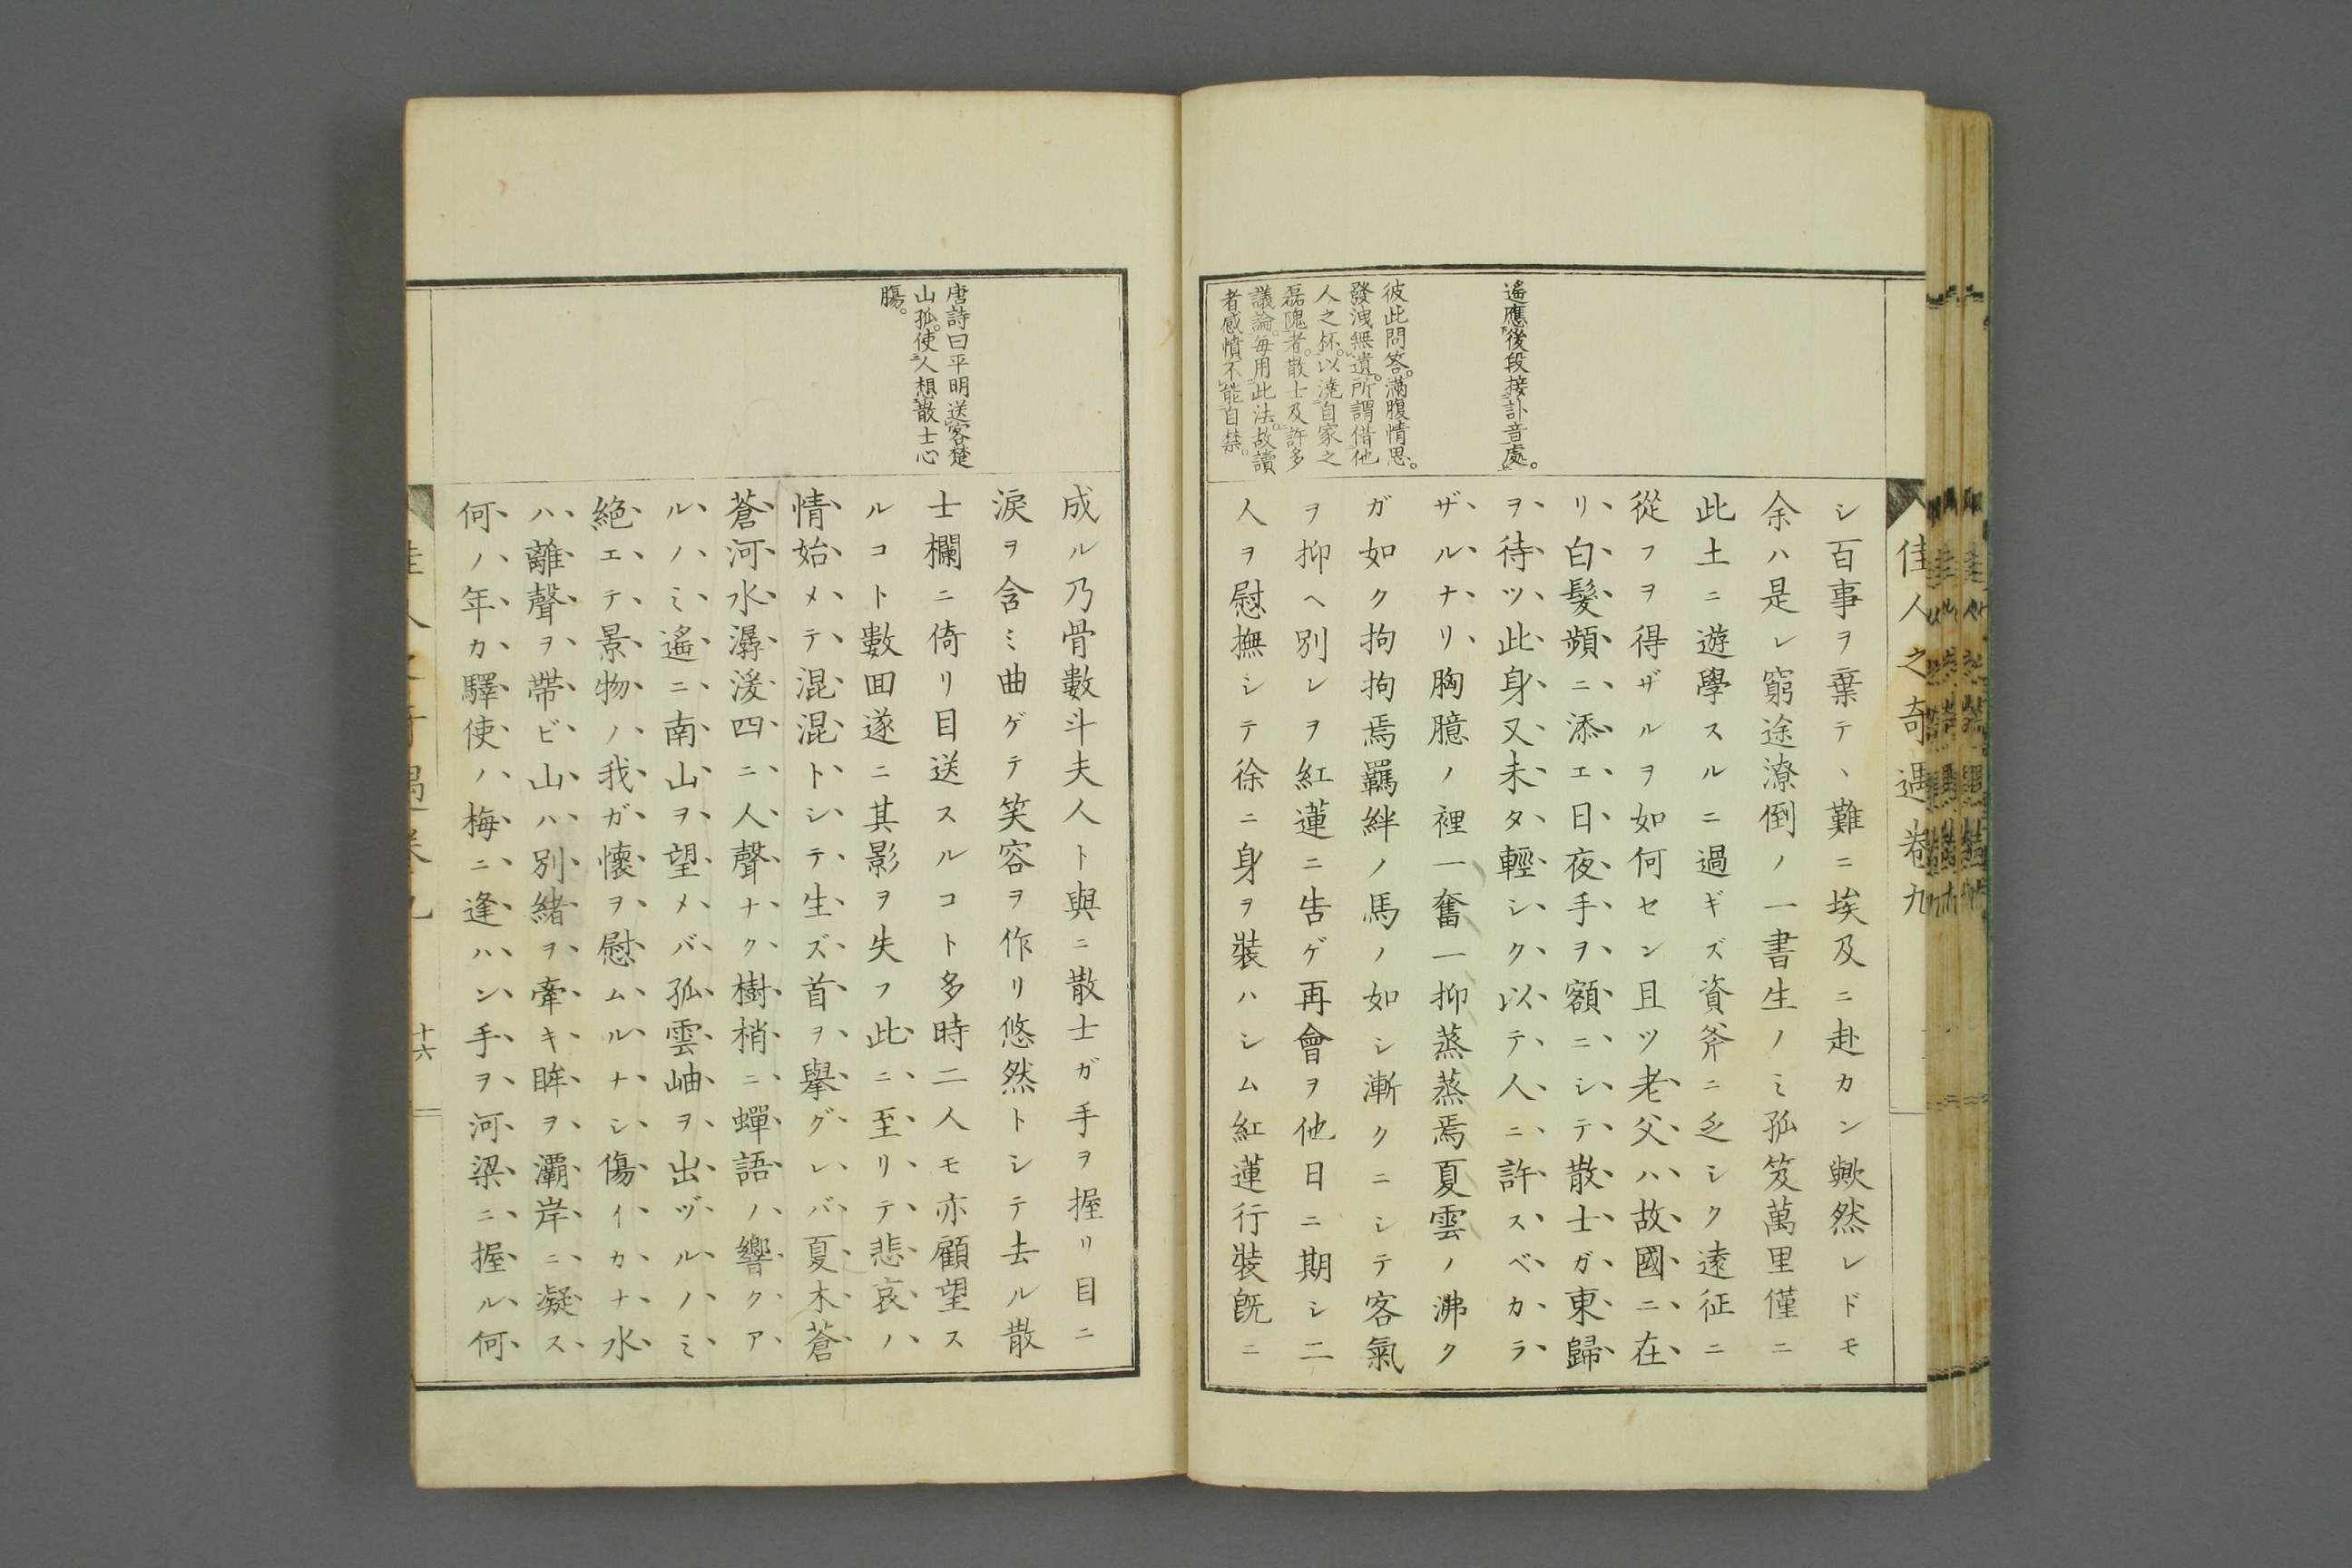 佳人之奇遇卷九
遙應後段接訃音處。
彼此問答。滿腹情思。
發洩無遺。所謂借他
人之杯。以澆自家之
磊隗者。散士及許多
議論。每用此法。故讀
者感憤不能自禁。
シ百事ヲ棄テヽ難ニ埃及ニ赴カン歟然レドモ
余ハ是レ窮途潦倒ノ一書生ノミ孤笈萬里僅ニ
此土ニ遊學スルニ過ギズ資斧ニ乏シク遠征ニ
從フヲ得ザルヲ如何セン且ツ老父ハ故國ニ在
リ白髮頻ニ添エ日夜手ヲ額ニシテ散士ガ東歸
ヲ待ツ此身又未タ輕シク以テ人ニ許スベカラ
ザルナリ胸臆ノ裡一奮一抑蒸蒸焉夏雲ノ沸ク
ガ如ク拘拘焉羈絆ノ馬ノ如シ漸クニシテ客氣
ヲ抑ヘ別レヲ紅蓮ニ告ゲ再會ヲ他日ニ期シ二
人ヲ慰撫シテ徐ニ身ヲ裝ハシム紅蓮行裝既ニ
唐詩曰平明送客楚
山孤。使人想散士心
膓。
成ル乃骨數斗夫人ト與ニ散士ガ手ヲ握リ目ニ
淚ヲ含ミ曲ゲテ笑容ヲ作リ悠然トシテ去ル散
士欄ニ倚リ目送スルコト多時二人モ亦顧望ス
ルコト數回遂ニ其影ヲ失フ此ニ至リテ悲哀ノ
情始メテ混混トシテ生ズ首ヲ擧グレバ夏木蒼
蒼河水潺湲四ニ人聲ナク樹梢ニ蟬語ノ響クア
ルノミ遙ニ南山ヲ望メバ孤雲岫ヲ出ヅルノミ
絶エテ景物ノ我ガ懷ヲ慰ムルナシ傷イカナ水
ハ離聲ヲ帶ビ山ハ別緒ヲ牽キ眸ヲ灞岸ニ凝ス
何ノ年カ驛使ノ梅ニ逢ハン手ヲ河梁ニ握ル何
十六